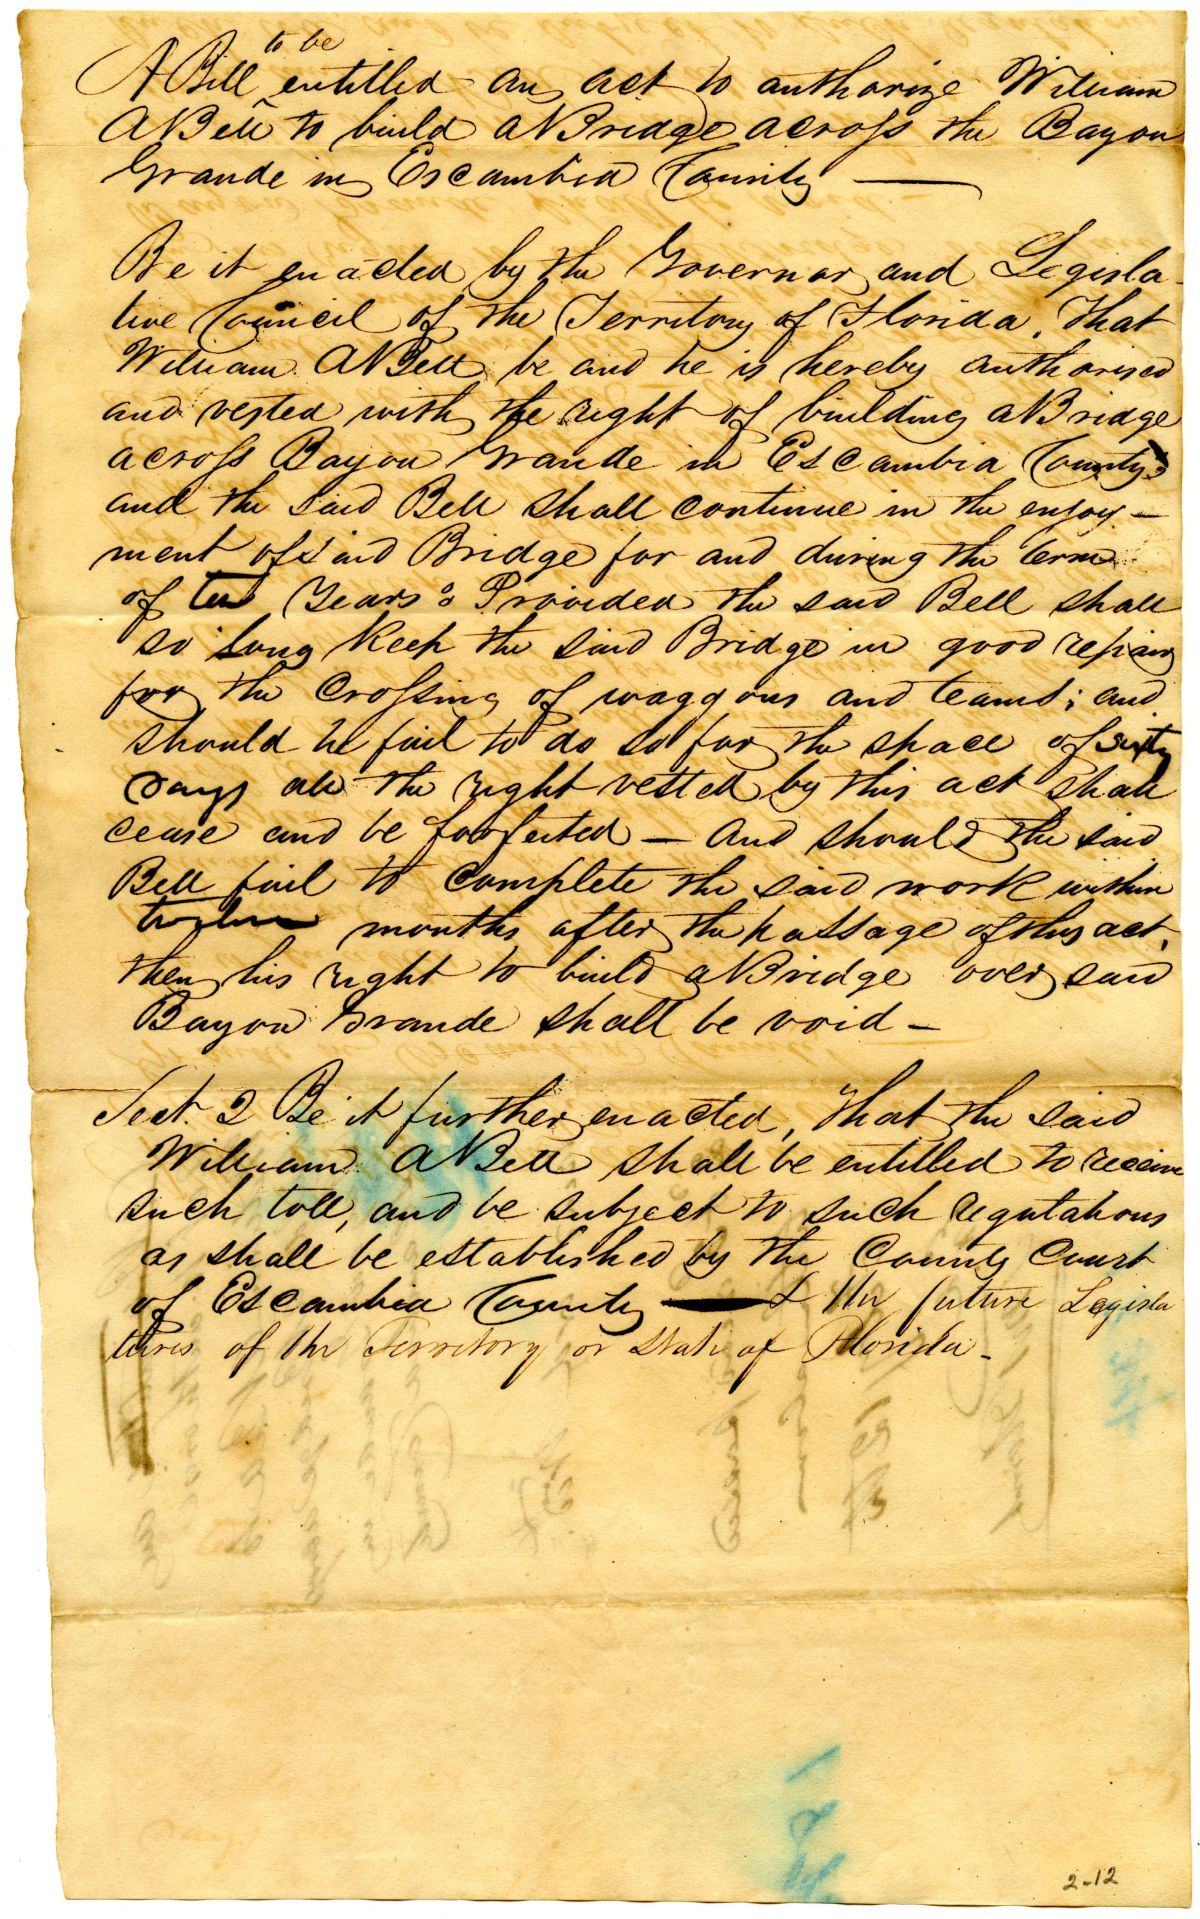 to be
A Bill entitled an act to authorize William
A Bell to build a Bridge across the Bayou
Grande in Escambia County —
Be it enacted by the Governor and Legisla-
tive Council of the Territory of Florida, That
William A Bell be and he is hereby authorised
and vested with the right of building a Bridge
across Bayou Grande in Escambia County
and the said Bell shall continue in the enjoy-
ment of said Bridge for and during the term
of ten Years: Provided the said Bell shall
so long Keep the said Bridge in good repair
for the Crossing of waggons and teams; and
should he fail to do so for the space of sixty
days all the right vested by this act shall
cease and be forfeited — And should the said
Bell fail to complete the said work within
twelve months after the passage of this act,
then his right to build a Bridge over said
Bayou Grande shall be void —
Sect. 2 Be it further enacted, That the said
William A Bell shall be entitled to receive
such toll, and be subject to such regulations
as shall be established by the County Court
of Escambia County & the future Legisla
tures of the Territory or State of Florida —
2-12